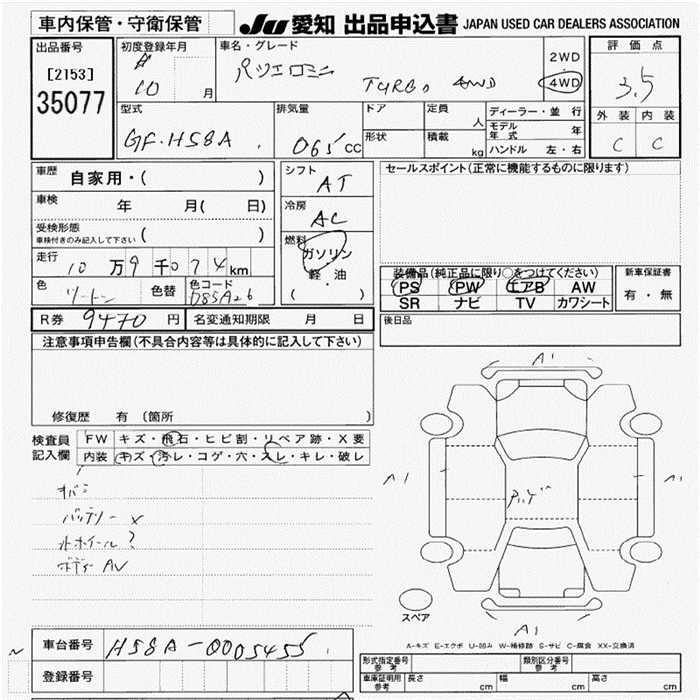 車内保管・守衛保管
JU 愛知 出品申込書 JAPAN USED CAR DEALERS ASSOCIATION
出品番号
[2153]
35077
初度登録年月
10 月
車名・グレード
パジェロミニ
TURBO 4WD
2WD
4WD
評価点
3.5
外装 内装
C C
型式
GF-H58A
排気量
065 CC
ドア
形状
定員 人
積載 kg
ディーラー・並行
モデル年式 年
ハンドル 左・右
車歴 自家用・( )
車検 年 月( 日)
受検形態
車検付きのみ記入して下さい ( )
走行 10万9千074km
色 ツートン 色替
色コード
シフト
AT
冷房
AC
燃料
ガソリン
軽・油
( )
セールスポイント(正常に機能するものに限ります)
装備品(純正品に限り○をつけてください)
PS PW エアB AW
SR ナビ TV カワシート
新車保証書
有・無
R券 9470 円 名変通知期限 月 日
後日品
注意事項申告欄(不具合内容等は具体的に記入して下さい)
修復歴 有(箇所 )
検査員
記入欄
FW キズ・飛石・ヒビ割・リペア跡・X要
内装 キズ・汚レ・コゲ・穴・スレ・キレ・破レ
バッテリー X
ホイール?
ボデー AV
A1
A1
A1
A1
スペア
A-キズ E-エクボ U-凹み W-補修跡 S-サビ C-腐食 XX-交換済
車台番号 H58A-0005455
登録番号
型式指定番号
参考
類別区分番号
参考
車庫証明用
参考
長さ cm 幅 cm 高さ cm